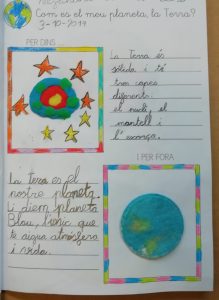 Com es el meu planeta, la Terra?
3-10-2017
PER DINS ...
La Terra és
sòlida i té
tres capes
diferents:
el nucli, el
mantell i
l'escorça.
I PER FORA
La terra es el
nostre planeta.
Li diem planeta
Blau, perquè que
te aigua atmosfera
i vida.